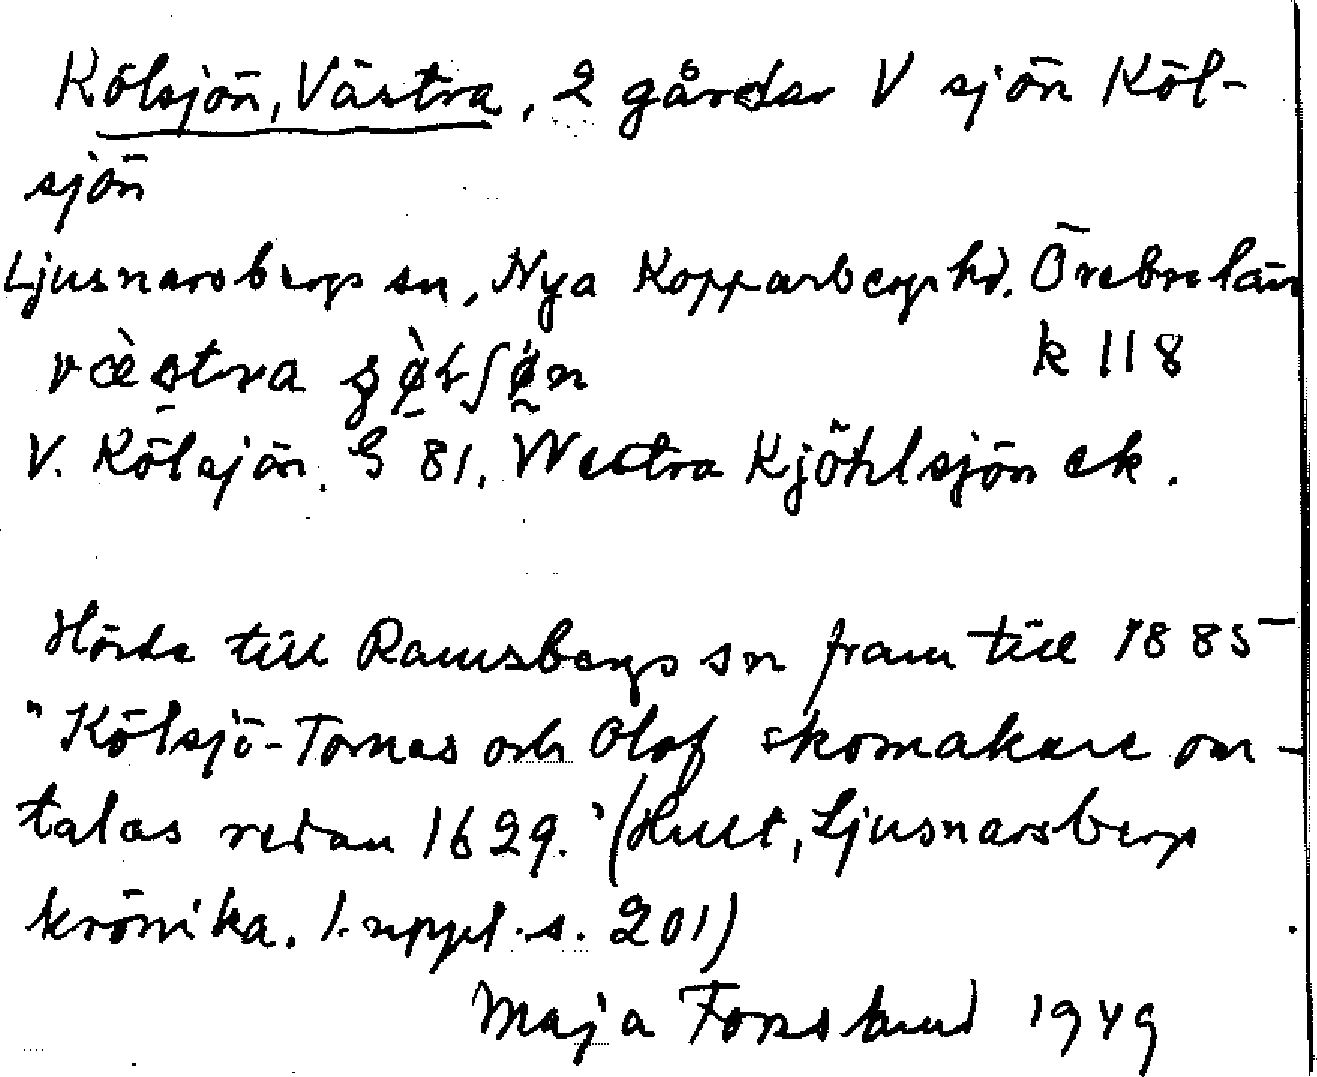 Kölsjön, Västra, 2 gårdar V sjön Köl-
sjön
Ljusnarsbergs sn, Nya Kopparbergs hd. Örebro län
västra k 118
V. Kölsjön. G 81. Westra Kjöhlsjön ek.
Hörde till Ramsbergs sn fram till 1885
"Kölsjö-Tomas och Olof skomakare om-
talas redan 1629." (Hult, Ljusnarsbergs
krönika. 1. uppl. s. 201)
Maja Forslund 1949